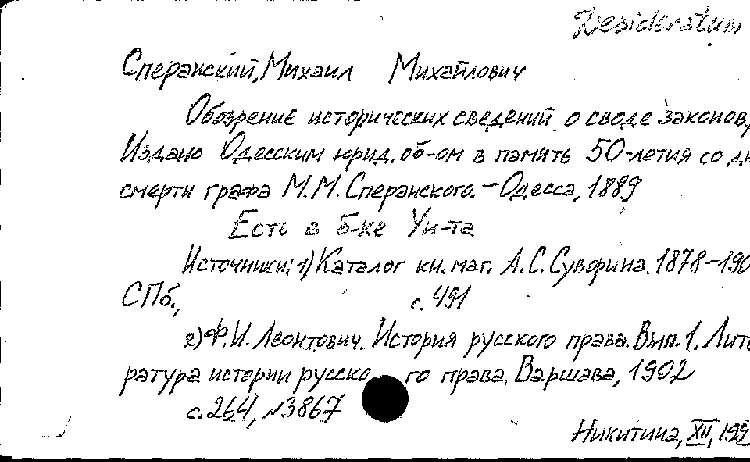 Desideratum
Сперанский, Михаил Михайлович
Обозрение исторических сведений о своде законов,
Издано Одесским юрид. об-ом в память 50-летия со дн
смерти графа М.М. Сперанского. - Одесса, 1889
Есть в б-ке Ун-та
Источники: 1) Каталог кн. маг. А.С. Суворина. 1878-190
СПб., с. 491
2) Ф.И. Леонтович. История русского права. Вып. 1. Лите
ратура истории русско го права. Варшава, 1902
с. 264, №3867
Никитина, XII, 199